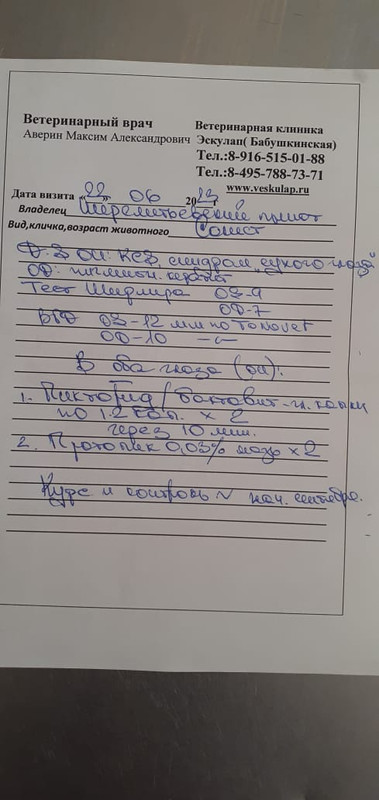 Ветеринарный врач
Аверин Максим Александрович
Ветеринарная клиника
Эскулап( Бабушкинская)
Тел.:8-916-515-01-88
Тел.:8-495-788-73-71
www.veskulap.ru
Дата визита «22» 06 2023 г
Владелец Шереметьевский приют
Вид,кличка,возраст животного
Д-З OU: синдром "сухого глаза"
OD: пигментн. кератит
Тест Ширмера OS-9
OD-7
ВГД OS-12 мм по Tonovet
OD-10 —"—
В оба глаза (OU):
1. /
по 1-2 кап. x 2
через 10 мин.
2. Протопик 0,03% мазь x 2
Курс и контроль ~ нач. сентября.